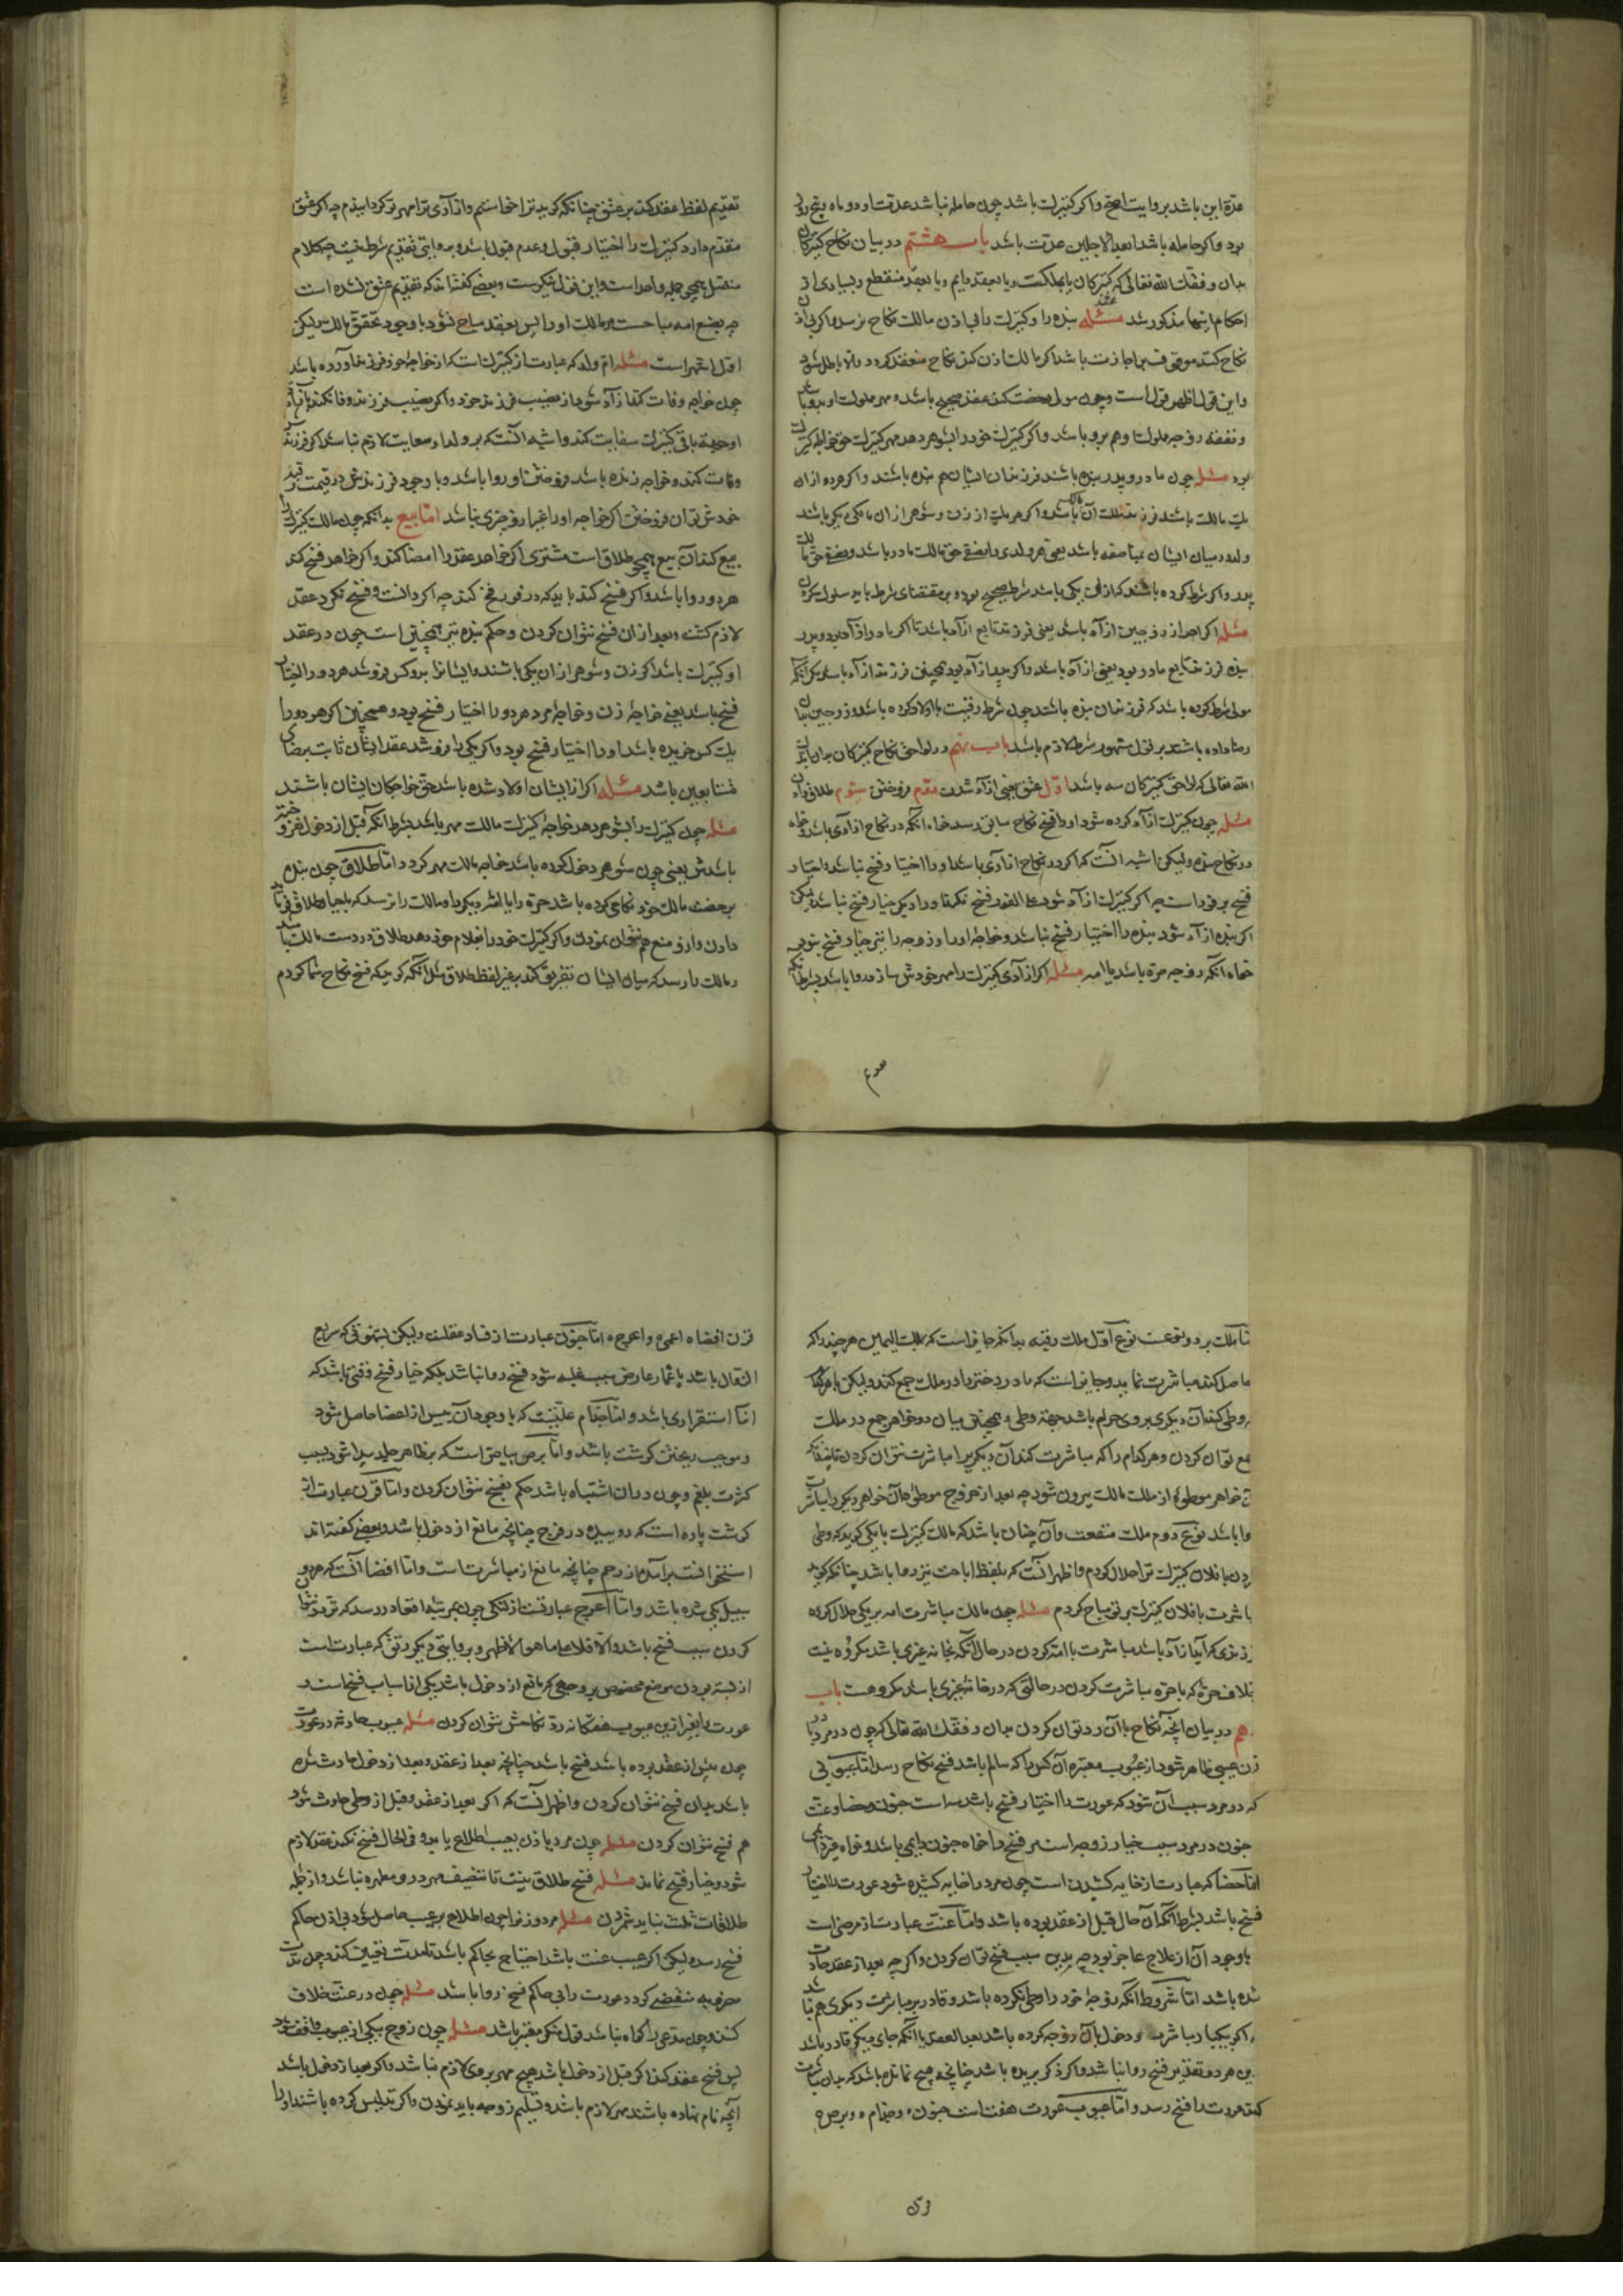 عدّة این باشد بروایت اصح و اکر کنیزك باشد چون حامله نباشد عدت او دو ماه و پنج روز
بود و اکر حامله باشد ابعد الاجلین عدت باشد باب هشتم در بیان نکاح کنیزکان
بدان وفقك الله تعالی که کنیزکان یا بملکیت و یا بعقد دایم و یا بعقد منقطع و بسیاری از
احکام اینها مذکور شد مسئله بنده را و کنیزك را بی اذن مالك نکاح نرسد و اکر بی اذن
نکاح کنند موقوف بر اجازت باشد اکر مالك اذن کند نکاح منعقد کردد و الا باطل شود
و این قول اظهر قول است و چون مولی رخصت کند عقد صحیح باشد و مهر مملوك او برو باشد
و نفقه زوجه مملوك او هم برو باشد و اکر کنیزك خود را بشوهر دهد مهر کنیزك حق خواجه کنیزك
بود مسئله چون مادر و پدر بنده باشند فرزندان ایشان هم بنده باشند و اکر هر دو از آن
یك مالك باشند فرزند ملك آن مالك باشد و اکر هر یك از زن و شوهر از آن مالکی دیکر باشند
ولد در میان ایشان مناصفه باشد یعنی هر ولدی را نصفی حق مالك مادر باشد و نصفی حق مالك
پدر و اکر شرط کرده باشند که از آن یکی باشد شرط صحیح بود و بر مقتضای شرط باید سلوك کردن
مسئله اکر احد از زوجین آزاد باشد یعنی فرزند تابع آزاد باشد تا اکر مادر آزاد بود و پدر
بنده فرزند تابع مادر بود یعنی آزاد باشد و اکر پدر آزاد بود همچنین فرزند آزاد باشد مکر آنکه
مولی شرط کرده باشد که فرزندان بنده باشند چون شرط رقیت با اولاد کرده باشد و زوجین بآن
رضا داده باشند بر قول مشهور شرط لازم باشد باب نهم در لواحق نکاح کنیزکان بدان ایدك
الله تعالی که لواحق کنیزکان سه باشد اول عتق یعنی آزاد شدن دوم فروختن سیوم طلاق دادن
مسئله چون کنیزك آزاد کرده شود او را فسخ نکاح سابق رسد خواه آنکه در نکاح آزادی باشد و خواه
در نکاح بنده و لیکن اشبه آنست که اکر در نکاح آزادی باشد او را اختیار فسخ نباشد و اختیار
فسخ بر فور است چه اکر کنیزك آزاد شود علی الفور فسخ نکرد او را دیکر خیار فسخ نباشد لیکن
اکر بنده آزاد شود بنده را اختیار فسخ نباشد و خواجه او را و زوجه را نیز خیار فسخ نبود
خواه آنکه زوجه حره باشد یا امه مسئله اکر آزادی کنیزك را مهر خودش سازد روا باشد بشرط آنکه
سدع
تقدیم لفظ عقد کند بر عتق چنانکه کوید ترا خواستم و آزادی ترا مهر تو کردانیدم چه اکر عتق
مقدم دارد کنیزك را اختیار قبول و عدم قبول باشد و بروایتی تقدیم شرط نیست چه کلام
متصل همچو جمله واحد است و این قول نیکوست و بعضی کفته اند که تقدیم عتق شده است
چه بضع امه مباحست بر مالك او را پس بعقد مباح نشود با وجود تحقق مالك و لیکن
اول اشهر است مسئله ام ولد که عبارت از کنیزك است که از خواجه خود فرزند آورده باشد
چون خواجه وفات کند آزاد شود از نصیب فرزند خود و اکر نصیب فرزند وفا نکند بآن
او جهة باقی کنیزك سعایت کند و اشبه آنست که بر ولد او سعایت لازم نباشد و اکر فرزند
وفات کند و خواجه زنده باشد فروختن او روا باشد و با وجود فرزندش در قیمت رقبه
خودش توان فروختن اکر خواجه او را غیر از او چیزی نباشد اما بیع بدانکه چون مالك کنیزك را
بیع کند آن بیع همچو طلاق است مشتری اکر خواهد عقد را امضا کند و اکر خواهد فسخ کند
هر دو روا باشد و اکر فسخ کند باید که در فور فسخ کند چه اکر دانست و فسخ نکرد عقد
لازم کشت و بعد از آن فسخ نتوان کردن و حکم بنده نیز همچنین است چون در عقد
او کنیزك باشد اکر زن و شوهر از آن یکی باشند و ایشانرا بدو کس فروشد هر دو را اختیار
فسخ باشد یعنی خواجه زن و خواجه مرد هر دو را اختیار فسخ بود و همچنین اکر هر دو را
یك کس خریده باشد او را اختیار فسخ بود و اکر یکی را فروشد عقد ایشان ثابت برضای
متبایعین باشد مسئله اکر از ایشان اولاد شده باشد حق خواجکان ایشان باشند
مسئله چون کنیزك را بشوهر دهد خواجه کنیزك مالك مهر باشد بشرط آنکه قبل از دخول نفروخته
باشدش یعنی چون شوهر دخول کرده باشد خواجه مالك مهر کردد اما طلاق چون بنده
برخصت مالك خود نکاح کرده باشد حره را یا امه دیکر را مالك را نرسد که باجبار طلاق فرماید
دادن و از او منع هم نتوان نمودن و اکر کنیزك خود را بغلام خود دهد طلاق در دست مالك باشد
و مالك را رسد که میان ایشان تفریق کند بغیر لفظ طلاق مثل آنکه کوید که فسخ نکاح شما کردم
تا ملك بر دو نوعست نوع اول ملك رقبه بدانکه جایز است که بملك الیمین هر چند را که
حاصل کند مباشرت نماید و جایز است که مادر و دختر را در ملك جمع کند و لیکن با هر کدام
وطی کند آن دیکری بروی حرام باشد جهة وطی و همچنین میان دو خواهر جمع در ملك
جمع توان کردن و هر کدام را که مباشرت کند آن دیکر را مباشرت نتوان کردن تا
خواهر موطؤه از ملك مالك بیرون شود چه بعد از خروج موطؤه آن خواهر دیکر را مباشرت
روا باشد نوع دوم ملك منفعت و آن چنان باشد که مالك کنیزك با یکی کوید که وطی
کردن با فلان کنیزك ترا حلال کردم و اظهر آنست که بلفظ اباحت نیز روا باشد چنانکه کوید
مباشرت با فلان کنیزك بر تو مباح کردم مسئله چون مالك مباشرت امه بر یکی حلال کرده
فرزندی که آید آزاد باشد مباشرت با امه کردن در حال آنکه بخانه غیری باشد مکروه نیست
بخلاف حره که با حره مباشرت کردن در حالتی که در خانه غیری باشد مکروهست باب
دهم در بیان آنچه نکاح با آن رد توان کردن بدان وفقك الله تعالی که چون در مرد یا در
زن عیبی ظاهر شود از عیوب معتبره آن کس را که سالم باشد فسخ نکاح رسد اما عیوبی
که در مرد سبب آن شود که عورت را اختیار فسخ باشد سه است جنون و خصا و عنت
جنون در مرد سبب خیار زوجه است بر فسخ را خواه جنون دایمی باشد و خواه غیر دایمی
اما خصا که عبارت از خایه کشیدن است چون مرد را خایه کشیده شود عورت را اختیار
فسخ باشد بشرط آنکه آن حال قبل از عقد بوده باشد و اما عنت عبارت از مرضی است
با وجود آن از علاج عاجز بود چه بدین سبب فسخ توان کردن و اکر چه بعد از عقد حادث
شده باشد اما بشرط آنکه زوجه خود را وطی نکرده باشد و قادر بر مباشرت دیکری هم نباشد
و اکر یکبار مباشرت و دخول بآن زوجه کرده باشد بعد العقد یا آنکه جای دیکر قادر باشد
برین هر دو تقدیر فسخ روا نباشد و اکر ذکر بریده باشد چنانچه هیچ نمانده باشد که بدان مباشرت
کند عورت را فسخ رسد و اما عیوب عورت هفت است جنون و جذام و برص و
وی
قرن افضا و اعمی و اعرج و اما جنون عبارت از فساد عقلست و لیکن بسهوی که سریع
الزوال باشد یا اغما عارض بسبب غلبه شود فسخ روا نباشد بلکه خیار فسخ وقتی باشد که
آنرا استقراری باشد و اما جذام علتیست که با وجود آن یبس از اعضا حاصل شود
و موجب ریختن کوشت باشد و اما برص بیاضی است که بر ظاهر جلد پیدا شود بسبب
کثرت بلغم و چون در آن اشتباه باشد حکم بفسخ نتوان کردن و اما قرن عبارت از
کوشت پاره است که روییده در فرج چنانچه مانع از دخول باشد و بعضی کفته اند
استخوانست برآمده از رحم چنانچه مانع از مباشرت است و اما افضا آنست که هر دو
سبیل یکی شده باشد و اما اعرج عبارتست از لنکی چون بمرتبه اقعاد رسد که تردد نتوان
کردن سبب فسخ باشد و الا فلا علی ما هو الاظهر و بروایتی دیکر رتق که عبارت است
از بسته بودن موضع مخصوص بر وجهی که مانع از دخول باشد یکی از اسباب فسخ است و
عورت را بغیر ازین عیوب هفتکانه رد نکاحش نتوان کردن مسئله عیوب حادثه در عورت
چون پیش از عقد بوده باشد فسخ باشد چنانچه بعد از عقد و بعد از دخول حادث شده
باشد بدان فسخ نتوان کردن و اظهر آنست که اکر بعد از عقد و قبل از وطی حادث شود
هم فسخ نتوان کردن مسئله چون مرد یا زن بعیب اطلاع یابد و فی الحال فسخ نکند عقد لازم
شود و خیار فسخ نماند مسئله فسخ طلاق نیست تا تنصیف مهر در و مطرد نباشد و از جمله
طلاقات ثلث نباید شمردن مسئله مرد و زنرا چون اطلاع بر عیب حاصل شود بی اذن حاکم
فسخ رسد و لیکن اکر عیب عنت باشد احتیاج بحاکم باشد تا مدت تعیین کند و چون مدت
مضروبه منقضی کردد عورت را بی حاکم فسخ روا باشد مسئله چون در عنت خلاف
کنند و چون مدعی را کواه نباشد قول منکر معتبر باشد مسئله چون زوج بیکی از عیوب واقف شود
پس فسخ عقد کند اکر قبل از دخول باشد هیچ مهر بروی لازم نباشد و اکر بعد از دخول باشد
آنچه نام نهاده باشند مهر لازم باشد و تسلیم زوجه باید نمودن و اکر تدلیس کرده باشند او را